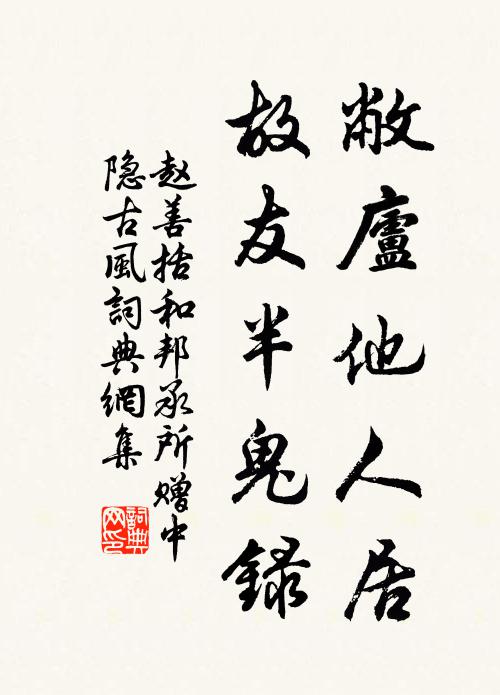 敝廬他人居
故友半鬼録
赵善括和邦承所赠中
隐古風詞典網集
詞典
网印